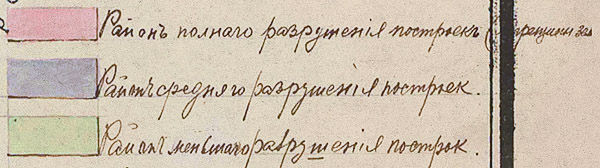 Районъ полнаго разрушенія построекъ
Районъ средняго разрушенія построек.
Районъ меньшаго разрушенія построк.